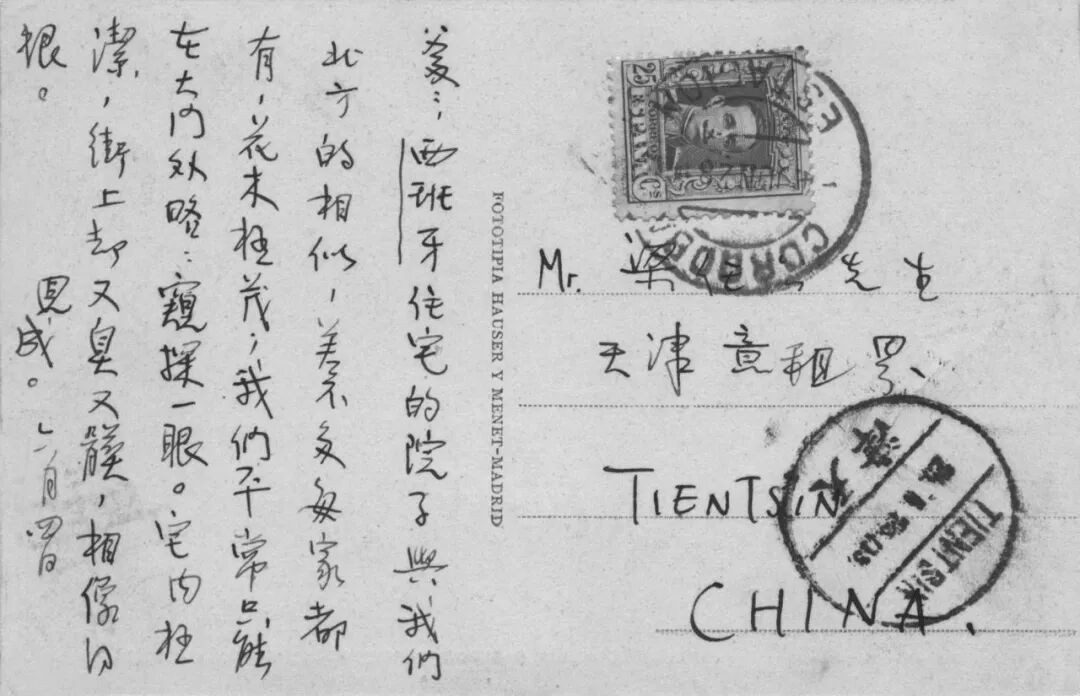 爹〻,西班牙住宅的院子與我們
北方的相似,差不多每家都
有,花木極茂,我們平常只能
在大門外略〻窺探一眼。宅內極
潔,街上却又臭又髒,相像得
很。 思成。六月四日
FOTOTIPIA HAUSER Y MENET-MADRID
25 Cs
CORREOS
Mr. 梁任 先生
天津意租界
TIENTSIN
CHINA.
天津
TIENTSIN